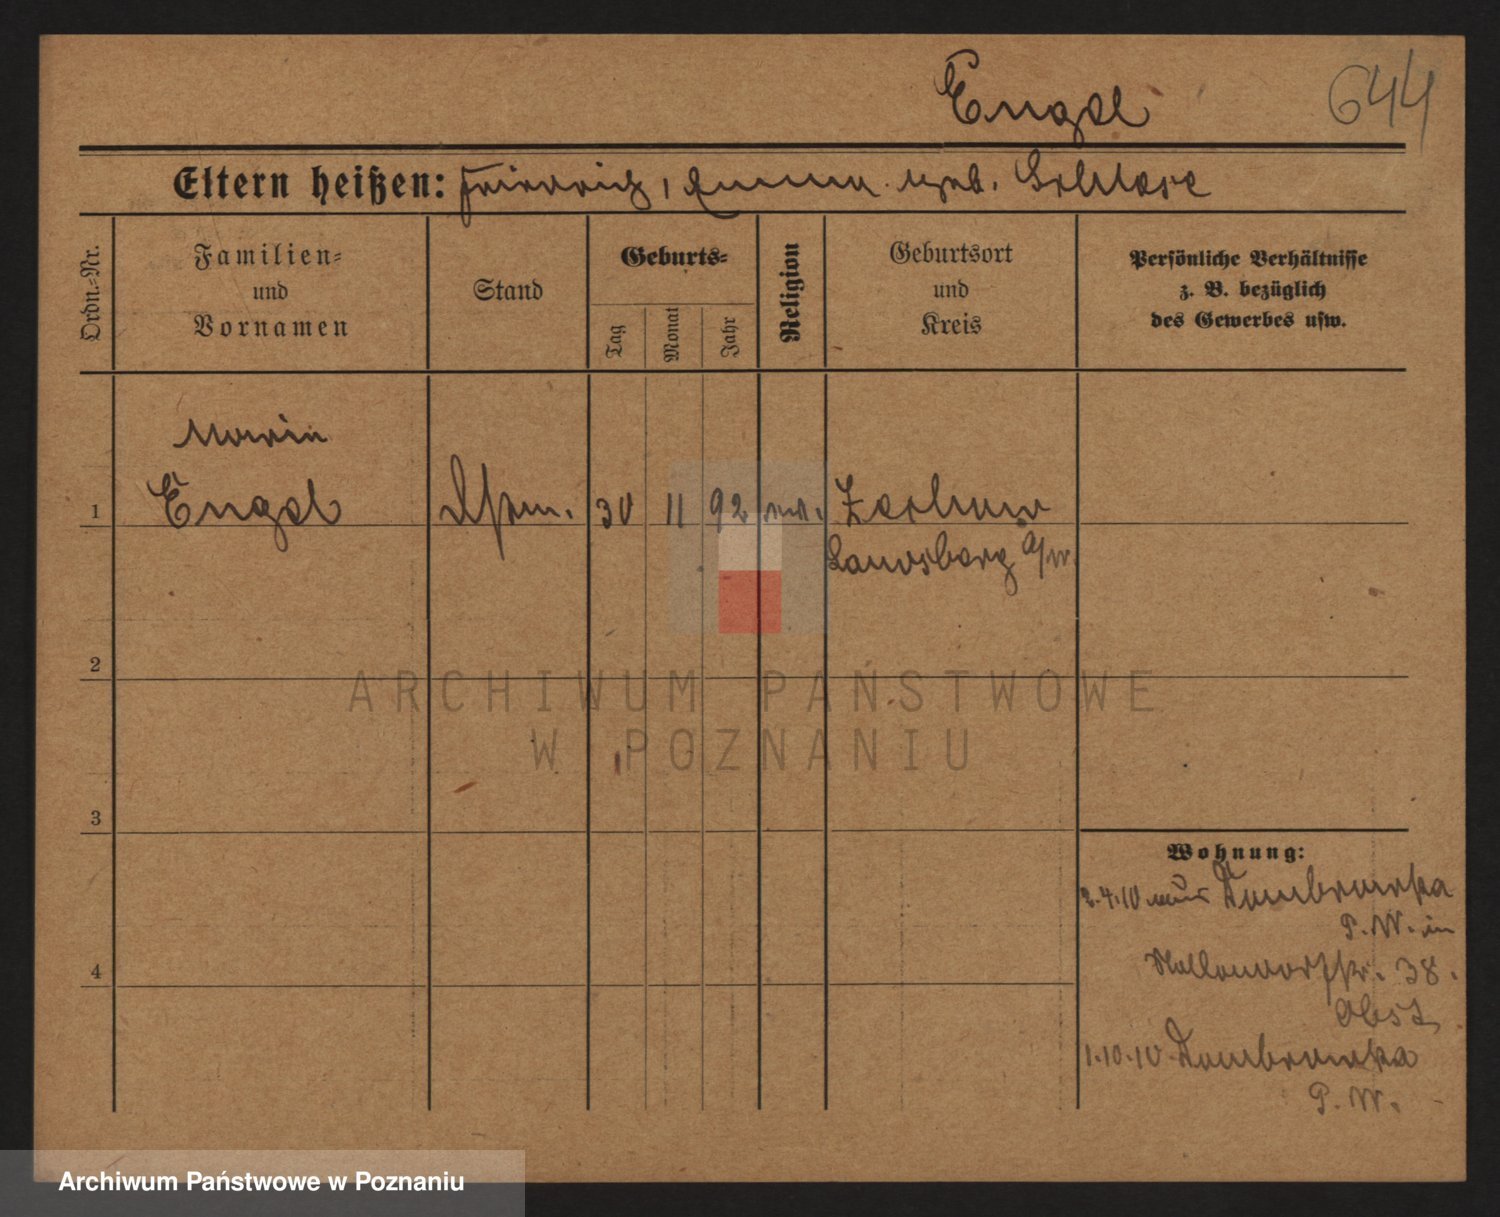 Engel
644
Eltern heißen: Friedrich, Emma geb.
Ordn.=Nr.
Familien=
und
Vornamen
Stand
Geburts=
Tag
Monat
Jahr
Religion
Geburtsort
und
Kreis
Persönliche Verhältnisse
z. B. bezüglich
des Gewerbes usw.
1
Engel
30 11 92
Zechow
Landsberg a/W.
2
3
4
Wohnung:
2.4.10 aus Dombrowka
P. W. in
38.
1.10.10 Dombrowka
P. W.
ARCHIWUM PAŃSTWOWE
W POZNANIU
Archiwum Państwowe w Poznaniu